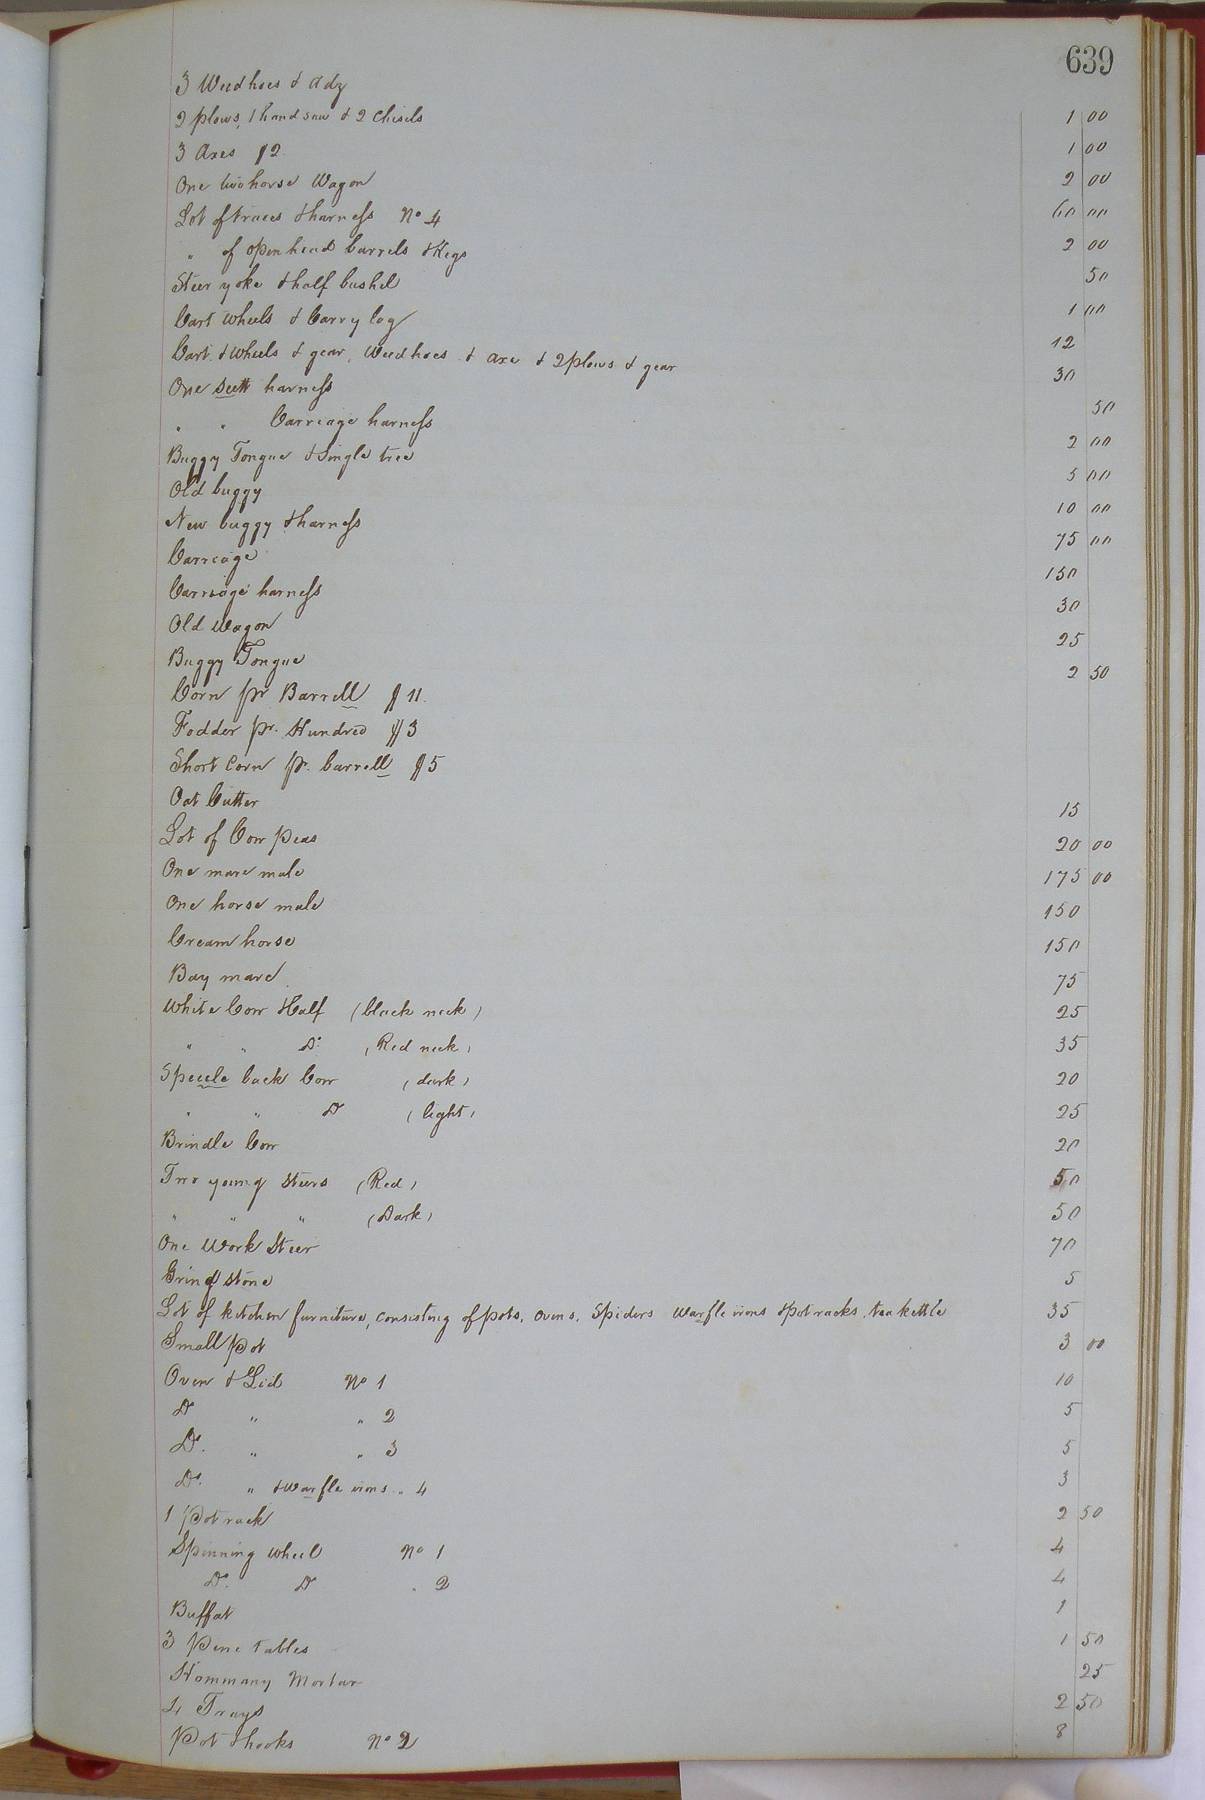 639
3 Weedhoes & Adz
2 plows, 1 handsaw & 2 Chisels 1 00
3 Axes $2 1 00
One two horse Wagon 2 00
Lot of traces & harness No 4 60 00
" of open head barrels & Kegs 2 00
Steer yoke & half bushel 50
Cart wheels & Carry log 1 00
Cart & Wheels & gear, Weedhoes & axe & 2 plows & gear 12
One Sett harness 30
" " Carriage harness 50
Buggy Tongue & Single tree 2 00
Old buggy 5 00
New buggy & harness 10 00
Carriage 75 00
Carriage harness 150
Old Wagon 30
Buggy Tongue 25
Corn pr Barrell $11. 2 50
Fodder pr. Hundred $3
Short Corn pr. barrell $5
Oat Cutter 15
Lot of Cow peas 20 00
One mare mule 175 00
One horse mule 150
Cream horse 150
Bay mare 75
White Cow & Calf (black neck) 25
" " Do (Red neck) 35
Speccle back Cow (dark) 20
" " Do (light) 25
Brindle Cow 20
Two young Steers (Red) 50
" " " (Dark) 50
One Work Steer 70
Grind Stone 5
Lot of kitchen furniture, consisting of pots, ovens, Spiders Warfle irons & pot racks, tea kettle 35
Small Pot 3 00
Oven & Lid No 1 10
Do " " 2 5
Do. " " 3 5
Do. " & Warfle irons " 4 3
1 Pot rack 2 50
Spinning wheel No 1 4
Do. Do " 2 4
Buffat 1
3 Pine tables 1 50
Hommany Mortar 25
4 Trays 2 50
Pot & hooks No 2 8